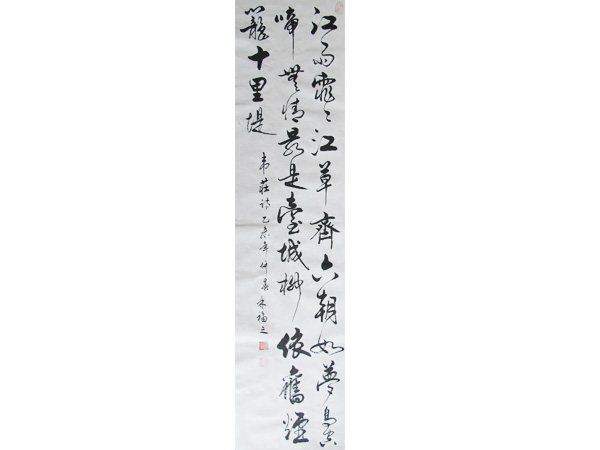 江雨霏霏江草齊六朝如夢鳥空
啼無情最是臺城柳依舊煙
籠十里堤
韋莊詩乙亥年仲春